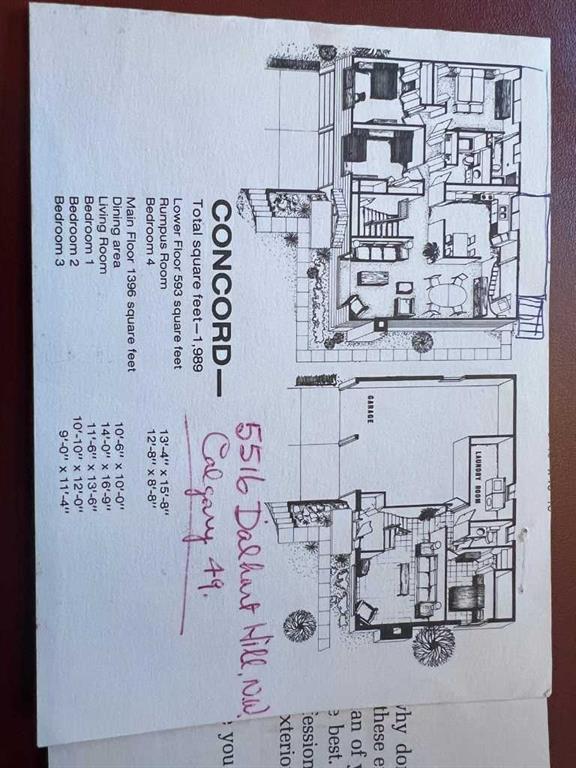 CONCORD—
Total square feet—1,989
Lower Floor 593 square feet
Rumpus Room 13'-4" x 15'-8"
Bedroom 4 12'-8" x 8'-8"
Main Floor 1396 square feet
Dining area 10'-6" x 10'-0"
Living Room 14'-0" x 16'-9"
Bedroom 1 11'-6" x 13'-6"
Bedroom 2 10'-10" x 12'-0"
Bedroom 3 9'-0" x 11'-4"
GARAGE
LAUNDRY ROOM
5516 Dalhart Hill, N.W.
Calgary 49.
why don
these e
an of y
e best.
ession
xterio
you